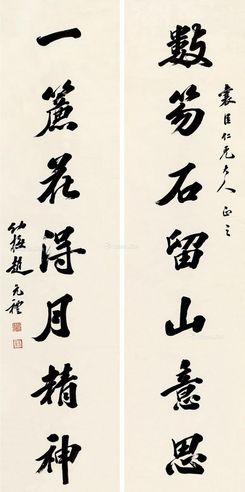 數笏石留山意思
臣仁兄大人正之
一簾花得月精神
幼梅趙元禮